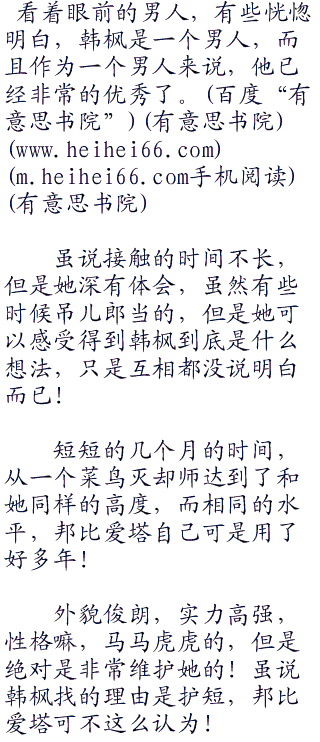 看着眼前的男人，有些恍惚
明白，韩枫是一个男人，而
且作为一个男人来说，他已
经非常的优秀了。(百度“有
意思书院”)(有意思书院)
(www.heihei66.com)
(m.heihei66.com手机阅读)
(有意思书院)
虽说接触的时间不长，
但是她深有体会，虽然有些
时候吊儿郎当的，但是她可
以感受得到韩枫到底是什么
想法，只是互相都没说明白
而已！
短短的几个月的时间，
从一个菜鸟灭却师达到了和
她同样的高度，而相同的水
平，邦比爱塔自己可是用了
好多年！
外貌俊朗，实力高强，
性格嘛，马马虎虎的，但是
绝对是非常维护她的！虽说
韩枫找的理由是护短，邦比
爱塔可不这么认为！